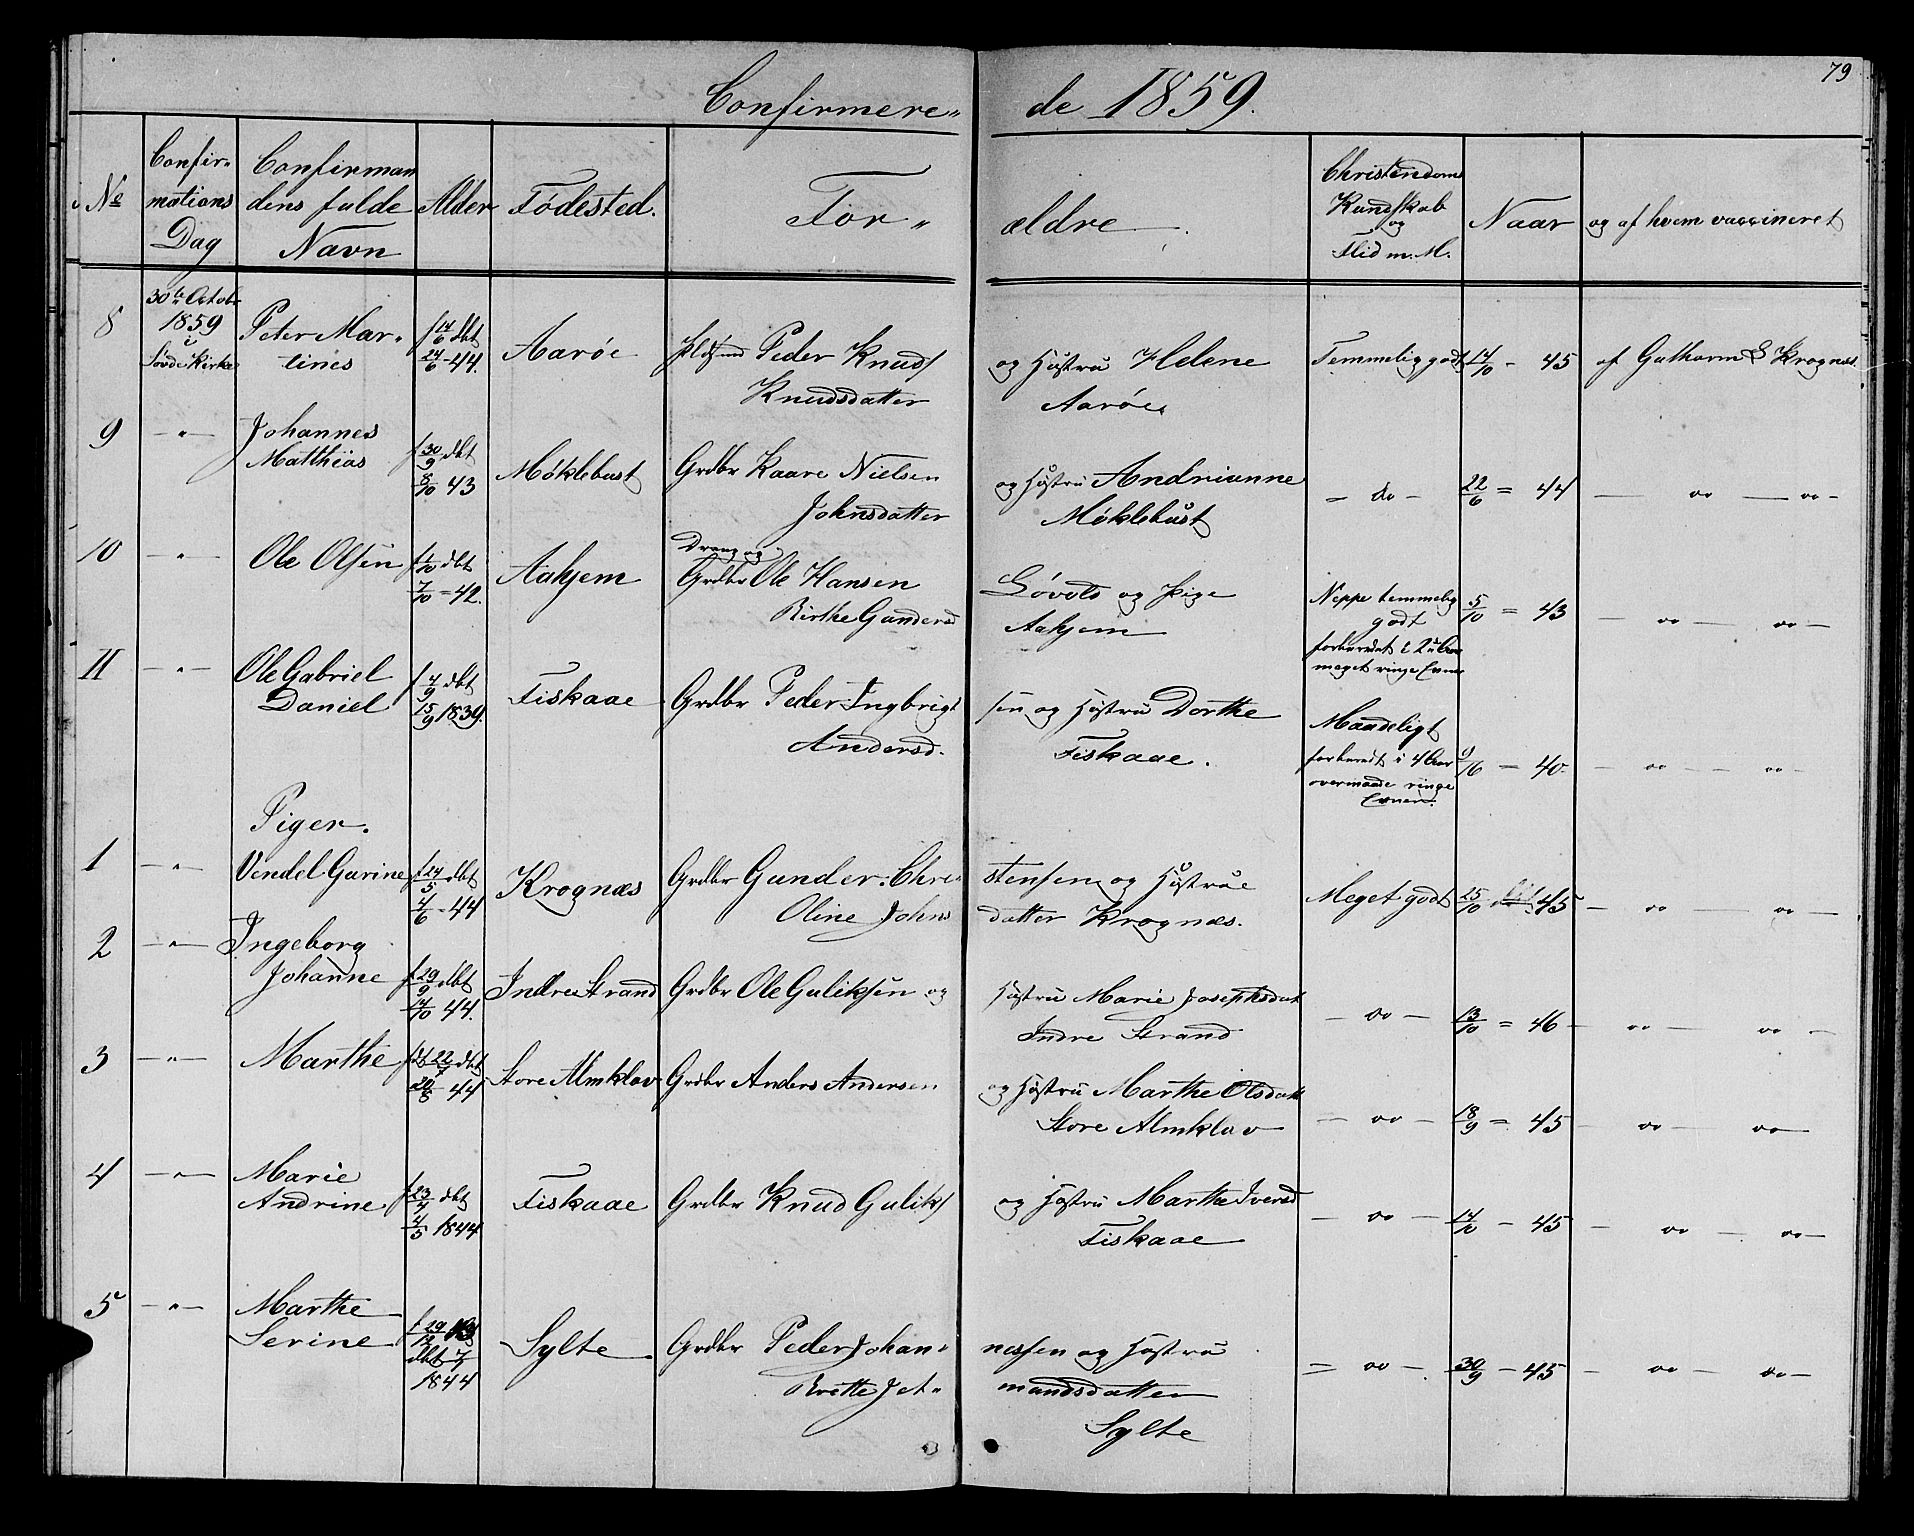 79
Confirmere„ de 1859.
No
Confir„
mations
Dag
Confirman
dens fulde
Navn
Alder
Födested.
For„ ældre.
Christendoms
Kundskab
og
Flid m. M.
Naar
og af hvem vaccineret
8
30te Octobr
1859
i
Søvde Kirke
Peter Mar„
tines
f 14/6 dbt
24/6 - 44.
Aarøe
Peder Knuds
og Hustru Helene
Knudsdatter
Aarøe
Temmelig godt
14/10 - 45
af Guthorm S Krognæs
9
- " -
Johannes
Matthias
f 30/9 dbt
8/10 43
Møklebust
Grdbr Kaare Nielsen
og Hustru Andrianne
Johnsdatter
Møklebust
- do -
22/6 = 44
— do — do -
10
- " -
Ole Olsen
f 1/10 dbt
7/10 = 42.
Aahjem
Dreng og
Grdbr Ole Hansen
Løvold og Pige
Birthe Gundersd
Aahjem
Neppe temmelig
godt
forberedt i 2 Aar
meget ringe Evner
5/10 = 43
— do — do —
11
- " -
Ole Gabriel
Daniel
f 4/9 dbt
15/9 1839.
Fiskaae
Grdbr Peder Ingbrigt
sen og Hustru Dorthe
Andersd.
Fiskaae.
Maadeligt
forberedt i 4 Aar
overmaade ringe
Evner.
9/6 = 40.
- do - - do -
Piger.
1
- " -
Vendel Gurine
f 24/5 dbt
4/6 - 44
Krognæs
Grdbr Gunder Chri„
stensen og Hustrue
Oline Johns
datter Krognæs.
Meget godt
25/10 45
- do — do —
2
- " -
Ingeborg
Johanne
f 29/9 dbt
14/10 44.
Indre Strand
Grdbr Ole Guliksen og
Hustru Marie Josephsdat
Indre Strand
- do -
13/10 = 46
- do — do -
3
- " -
Marthe
22/7 dbt
20/8 44
Store Almklov
Grdbr Anders Andersen
og Hustru Marthe Olsdatt
Store Almklov
- do -
18/9 = 45
- do — do —
4
- " -
Marie
Andrine
f 23/4 dbt
4/5 1844
Fiskaae
Grdbr Knud Guliks
og Hustru Marthe Iversd
Fiskaae
- do -
14/10 - 45
- do — do —
5
- " -
Marthe
Serine
f 29/12 43
dbt
1844
Sylte
Grdbr Peder Johan„
nessen og Hustru
Brette Jet„
mundsdatter
Sylte
= do -
30/9 - 45
- do — do —